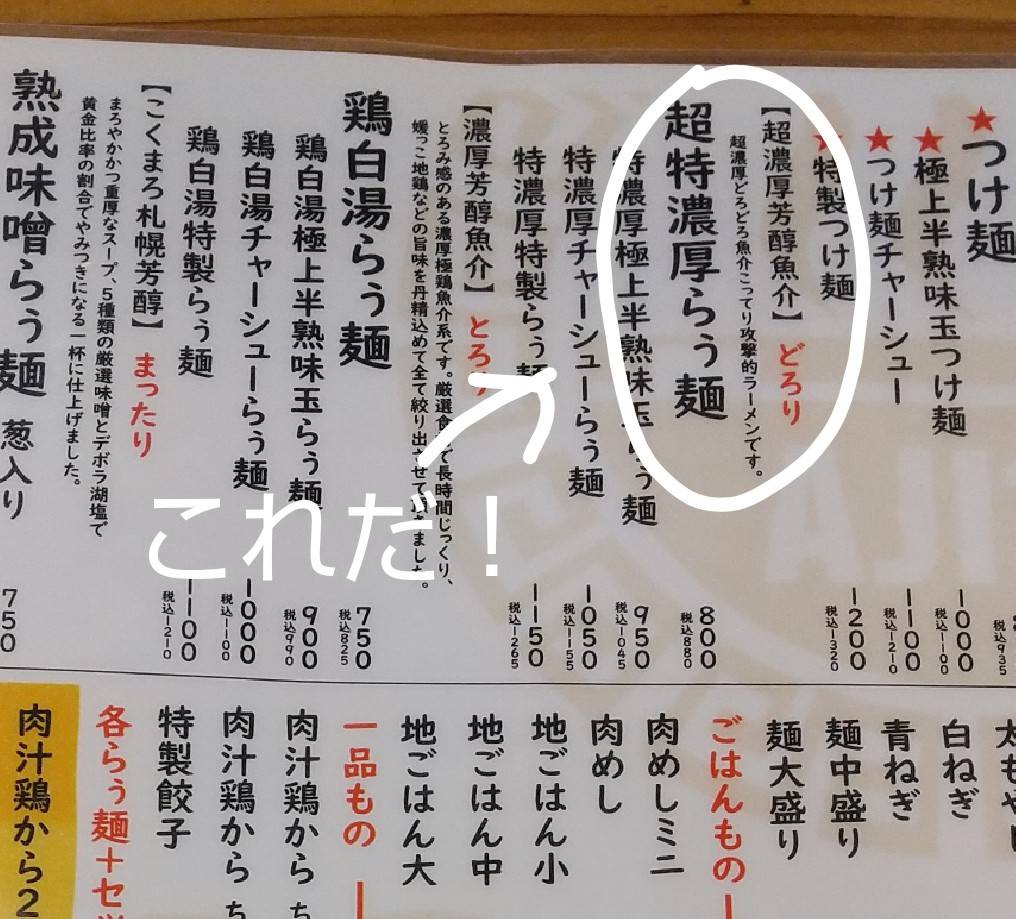 ★つけ麺
税込935
★極上半熟味玉つけ麺
1000
税込1100
★つけ麺チャーシュー
1100
税込1210
★特製つけ麺
1200
税込1320
【超濃厚芳醇魚介】どろり
超濃厚どろどろ魚介こってり攻撃的ラーメンです。
超特濃厚らぅ麺
800
税込880
特濃厚極上半熟味玉らぅ麺
950
税込1045
特濃厚チャーシューらぅ麺
1050
税込1155
特濃厚特製らぅ麺
1150
税込1265
【濃厚芳醇魚介】とろり
とろみ感のある濃厚極鶏魚介系です。厳選食 で長時間じっくり、
媛っこ地鶏などの旨味を丹精込めて全て絞り出させて頂きました。
鶏白湯らぅ麺
750
税込825
鶏白湯極上半熟味玉らぅ麺
900
税込990
鶏白湯チャーシューらぅ麺
1000
税込1100
鶏白湯特製らぅ麺
1100
税込1210
【こくまろ札幌芳醇】まったり
まろやかかつ重厚なスープ、5種類の厳選味噌とデボラ湖塩で
黄金比率の割合でやみつきになる一杯に仕上げました。
熟成味噌らぅ麺 葱入り
750
これだ！
白ねぎ
青ねぎ
麺中盛り
麺大盛り
ごはんもの
肉めしミニ
肉めし
地ごはん小
地ごはん中
地ごはん大
一品もの
肉汁鶏から
肉汁鶏から
特製餃子
各らぅ麺＋セ
肉汁鶏から2
AJI